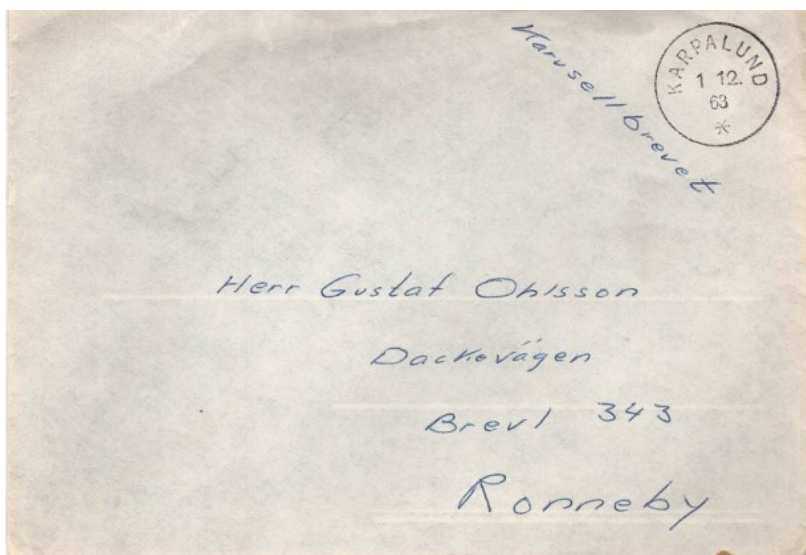 Karusellbrevet
KARPALUND
1 12.
63
*
Herr Gustaf Ohlsson
Dackevägen
Brevl 343
Ronneby